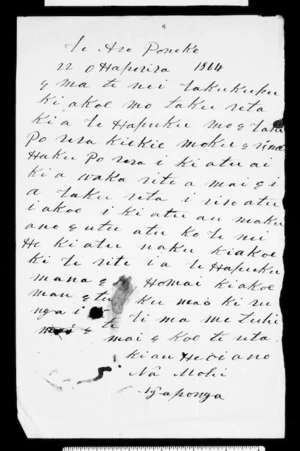 Te Aro Poneke
22 o Haperira 1864
E ma te nei taku kupu
ki a koe mo taku reta
ki a te Hapuku mo e tahi
Po rera kiekie moku e riria
Haku Po rera i ki atu ai
ki a waka rite a mai e i
a taku reta i riro atu
i a koe i ki atu au maku
ano e utu atu ko te nui
He ki atu naku ki a koe
ki te rite i a te Hapuku
mana e Homai ki a koe
mau e tu ku mai ki ru
nga i ti ma me tuhi
mai e koe te uta
ki au Heoi ano
Na Mohi
Ngaponga